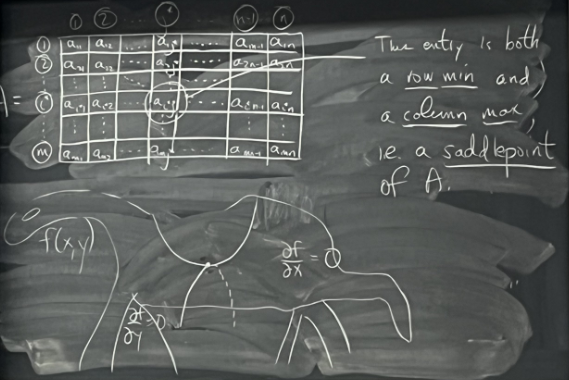 ① ② ..... j* ..... n-1 n
① a11 a12 ..... a1j* ..... a1n-1 a1n
② a21 a22 ..... a2j* ..... a2n-1 a2n
A = i* ai*1 ai*2 ..... ai*j* ..... ai*n-1 ai*n
m am1 am2 ..... amj* ..... amn-1 amn
The entry is both
a row min and
a column max,
ie. a saddlepoint
of A.
f(x,y)
∂f/∂x = 0
∂f/∂y = 0